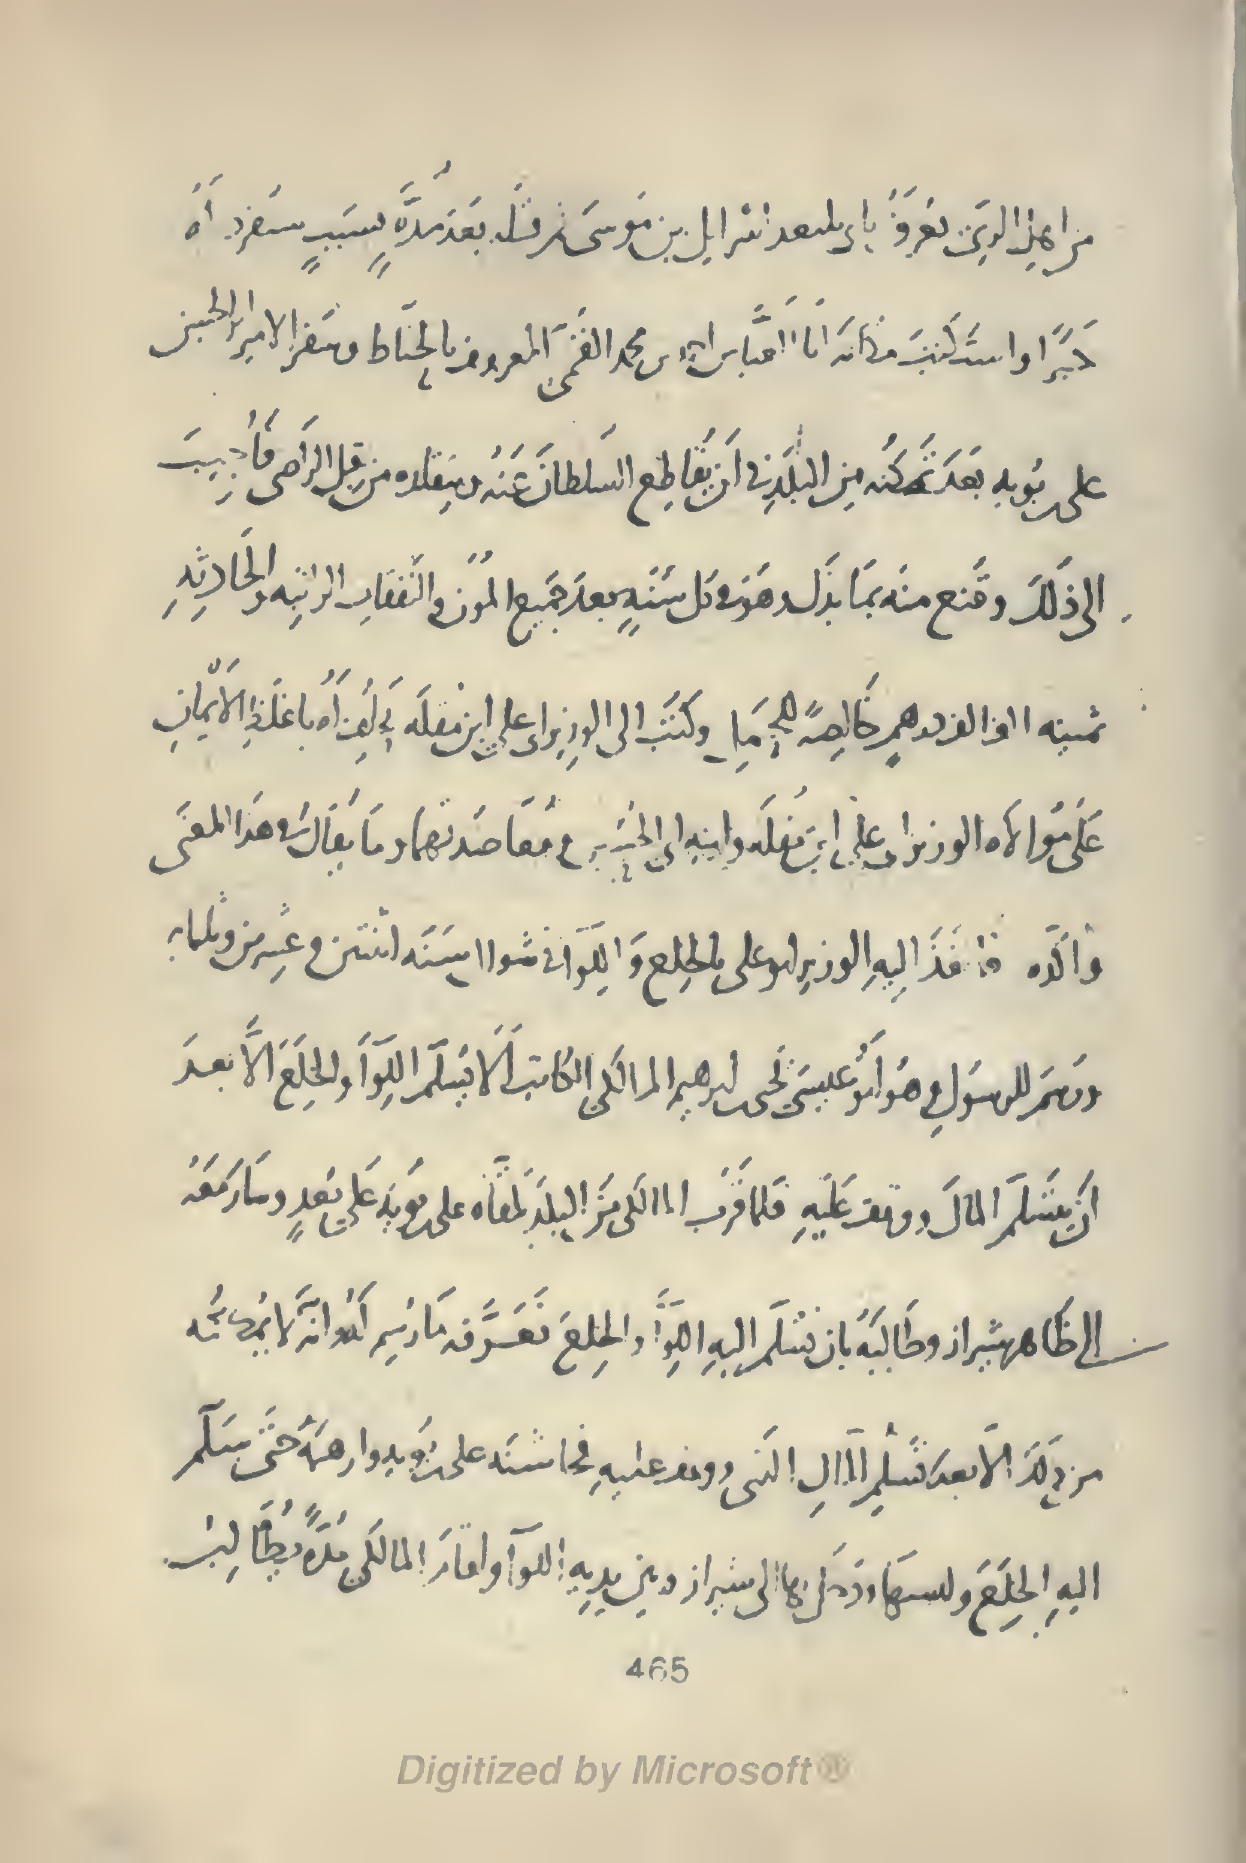 من اهل الري يعرف بابي سعد اسرائيل بن موسى ثم قتله بعد مدة بسبب سنفرد له
خبرا واستكتب مكانه ابا العباس احمد بن محمد القمي المعروف بالحناط وسفر الامير ابو الحسين
على بن بويه بعد تمكنه من البلد في ان يقاطع السلطان عنه ويتقلده من قبل الراضى فاجيب
الى ذلك وقنع منه بما بذل وهو في كل سنة بعد جميع المؤن و النفقات الراتبة والحادثة
ثمنيه الف الف درهم خالصة للحمل وكتب الى الوزير ابي علي ابن مقله يحلف له باغلظ الايمان
على موالاه الوزير ابي علي ابن مقله وابنه ابي الحسين و مقاصدتهما وما يقال في هذا المعنى
واكده فانفذ اليه الوزير ابو على بالخلع واللوآ في شوال سنه اثنتين و عشرين وثلثمايه
ورسم للرسول و هو ابو عيسى يحيى بن ابرهيم المالكي الكاتب الا يسلم اللوآ والخلع الا بعد
ان يتسلم المال ووقف عليه فلما قرب المالكي من البلد تلقاه على بن بويه على بعد وسار معه
الى ظاهر شيراز وطالبه بان يسلم اليه اللوآ والخلع فعرفه ما رسم له وانه لا يمكنه
من ذلك الا بعد تسليم المال الذى ووقف عليه فخاشنه على بن بويه وارهبه حتى سلم
اليه الخلع ولبسها ودخل بها الى شيراز وبين يديه اللوآ واقام المالكي مدة يطالب
465
Digitized by Microsoft®